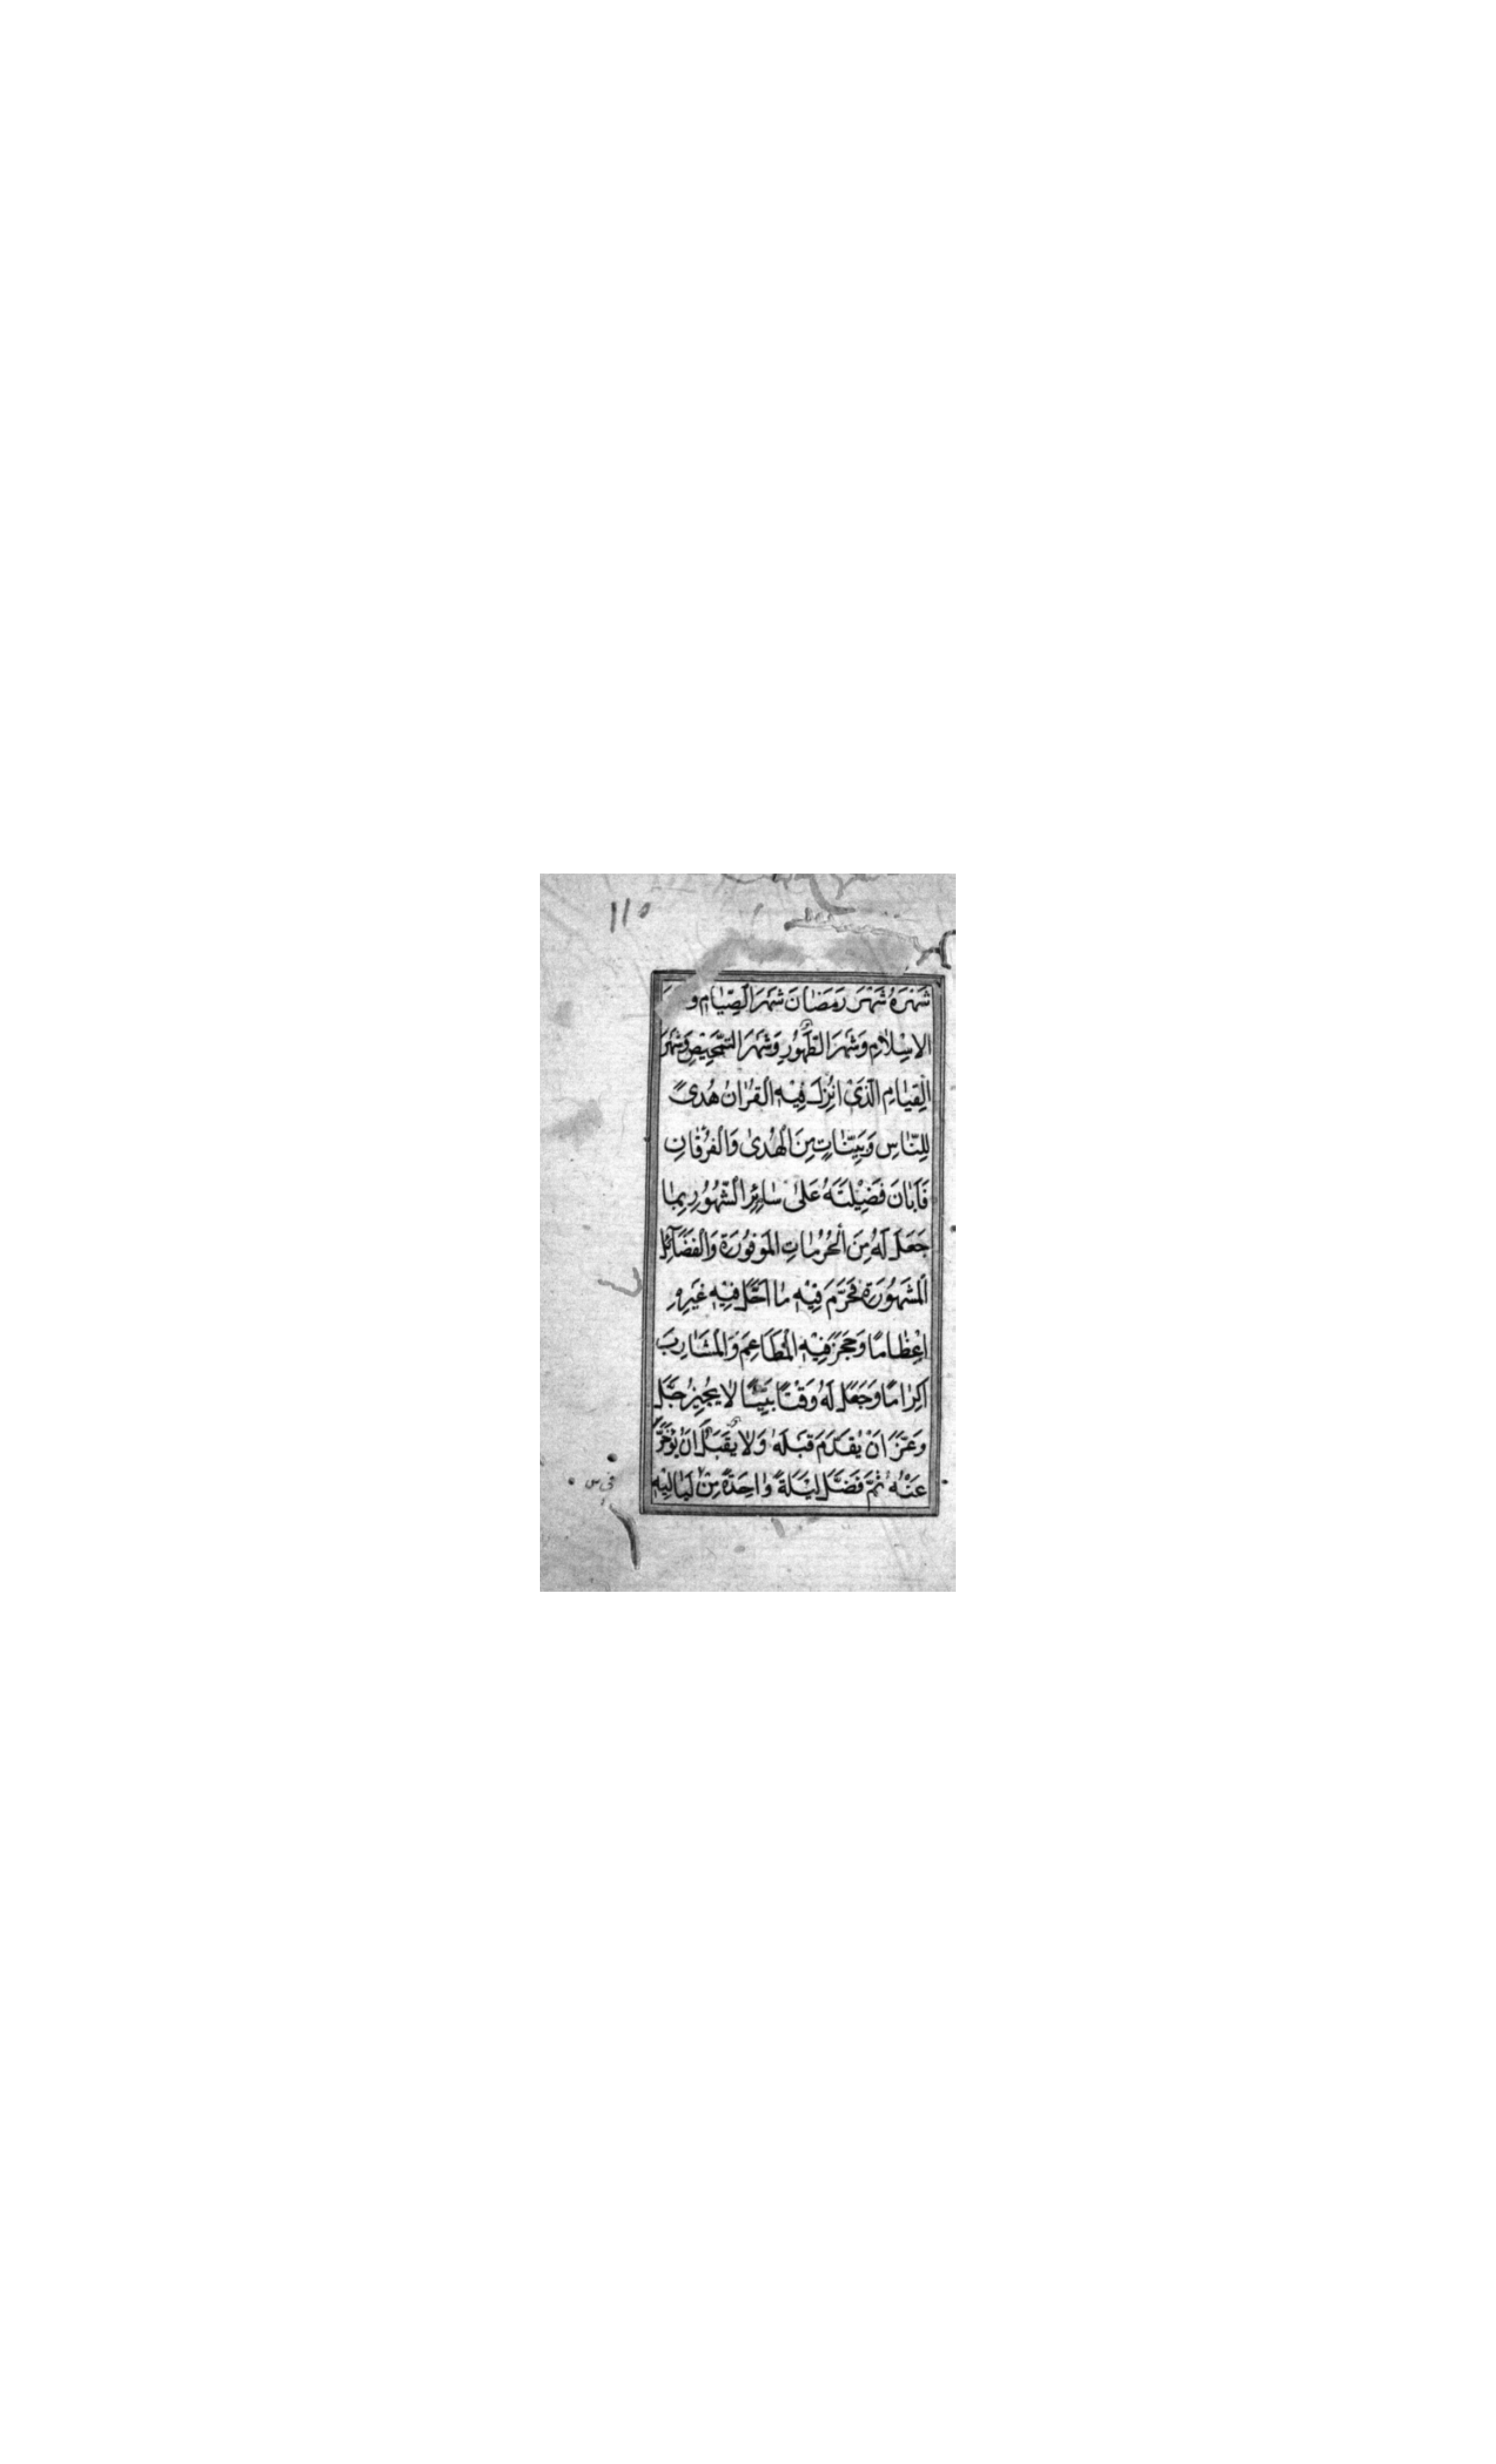 ١١٥
شَهْرَهُ شَهْرَ رَمَضَانَ شَهْرَ الصِّيَامِ وَ
الاِسْلَامِ وَشَهْرَ الطَّهُورِ وَشَهْرَ التَّمْحِيصِ وَشَهْرَ
الْقِيَامِ الَّذِي اُنْزِلَ فِيْهِ الْقُرْانُ هُدىً
لِلنَّاسِ وَبَيِّنَاتٍ مِنَ الْهُدىٰ وَالْفُرْقَانِ
فَاَبَانَ فَضِيْلَتَهُ عَلىٰ سَائِرِ الشُّهُورِ بِمَا
جَعَلَ لَهُ مِنَ الْحُرُمَاتِ الْمَوْفُورَةِ وَالْفَضَائِلِ
الْمَشْهُورَةِ فَحَرَّمَ فِيْهِ مَا اَحَلَّ فِيْهِ غَيْرِهِ
اِعْظَامًا وَحَجَرَ فِيْهِ الْمَطَاعِمَ وَالْمَشَارِبَ
اِكْرَامًا وَجَعَلَ لَهُ وَقْتًا بَيِّنًا لَا يُجِيزُ جَلَّ
وَعَزَّ اَنْ يُقَدَّمَ قَبْلَهُ وَلَا يَقْبَلُ اَنْ يُؤَخَّرَ
عَنْهُ ثُمَّ فَضَّلَ لَيْلَةً وَاحِدَةً مِنْ لَيَالِيْهِ